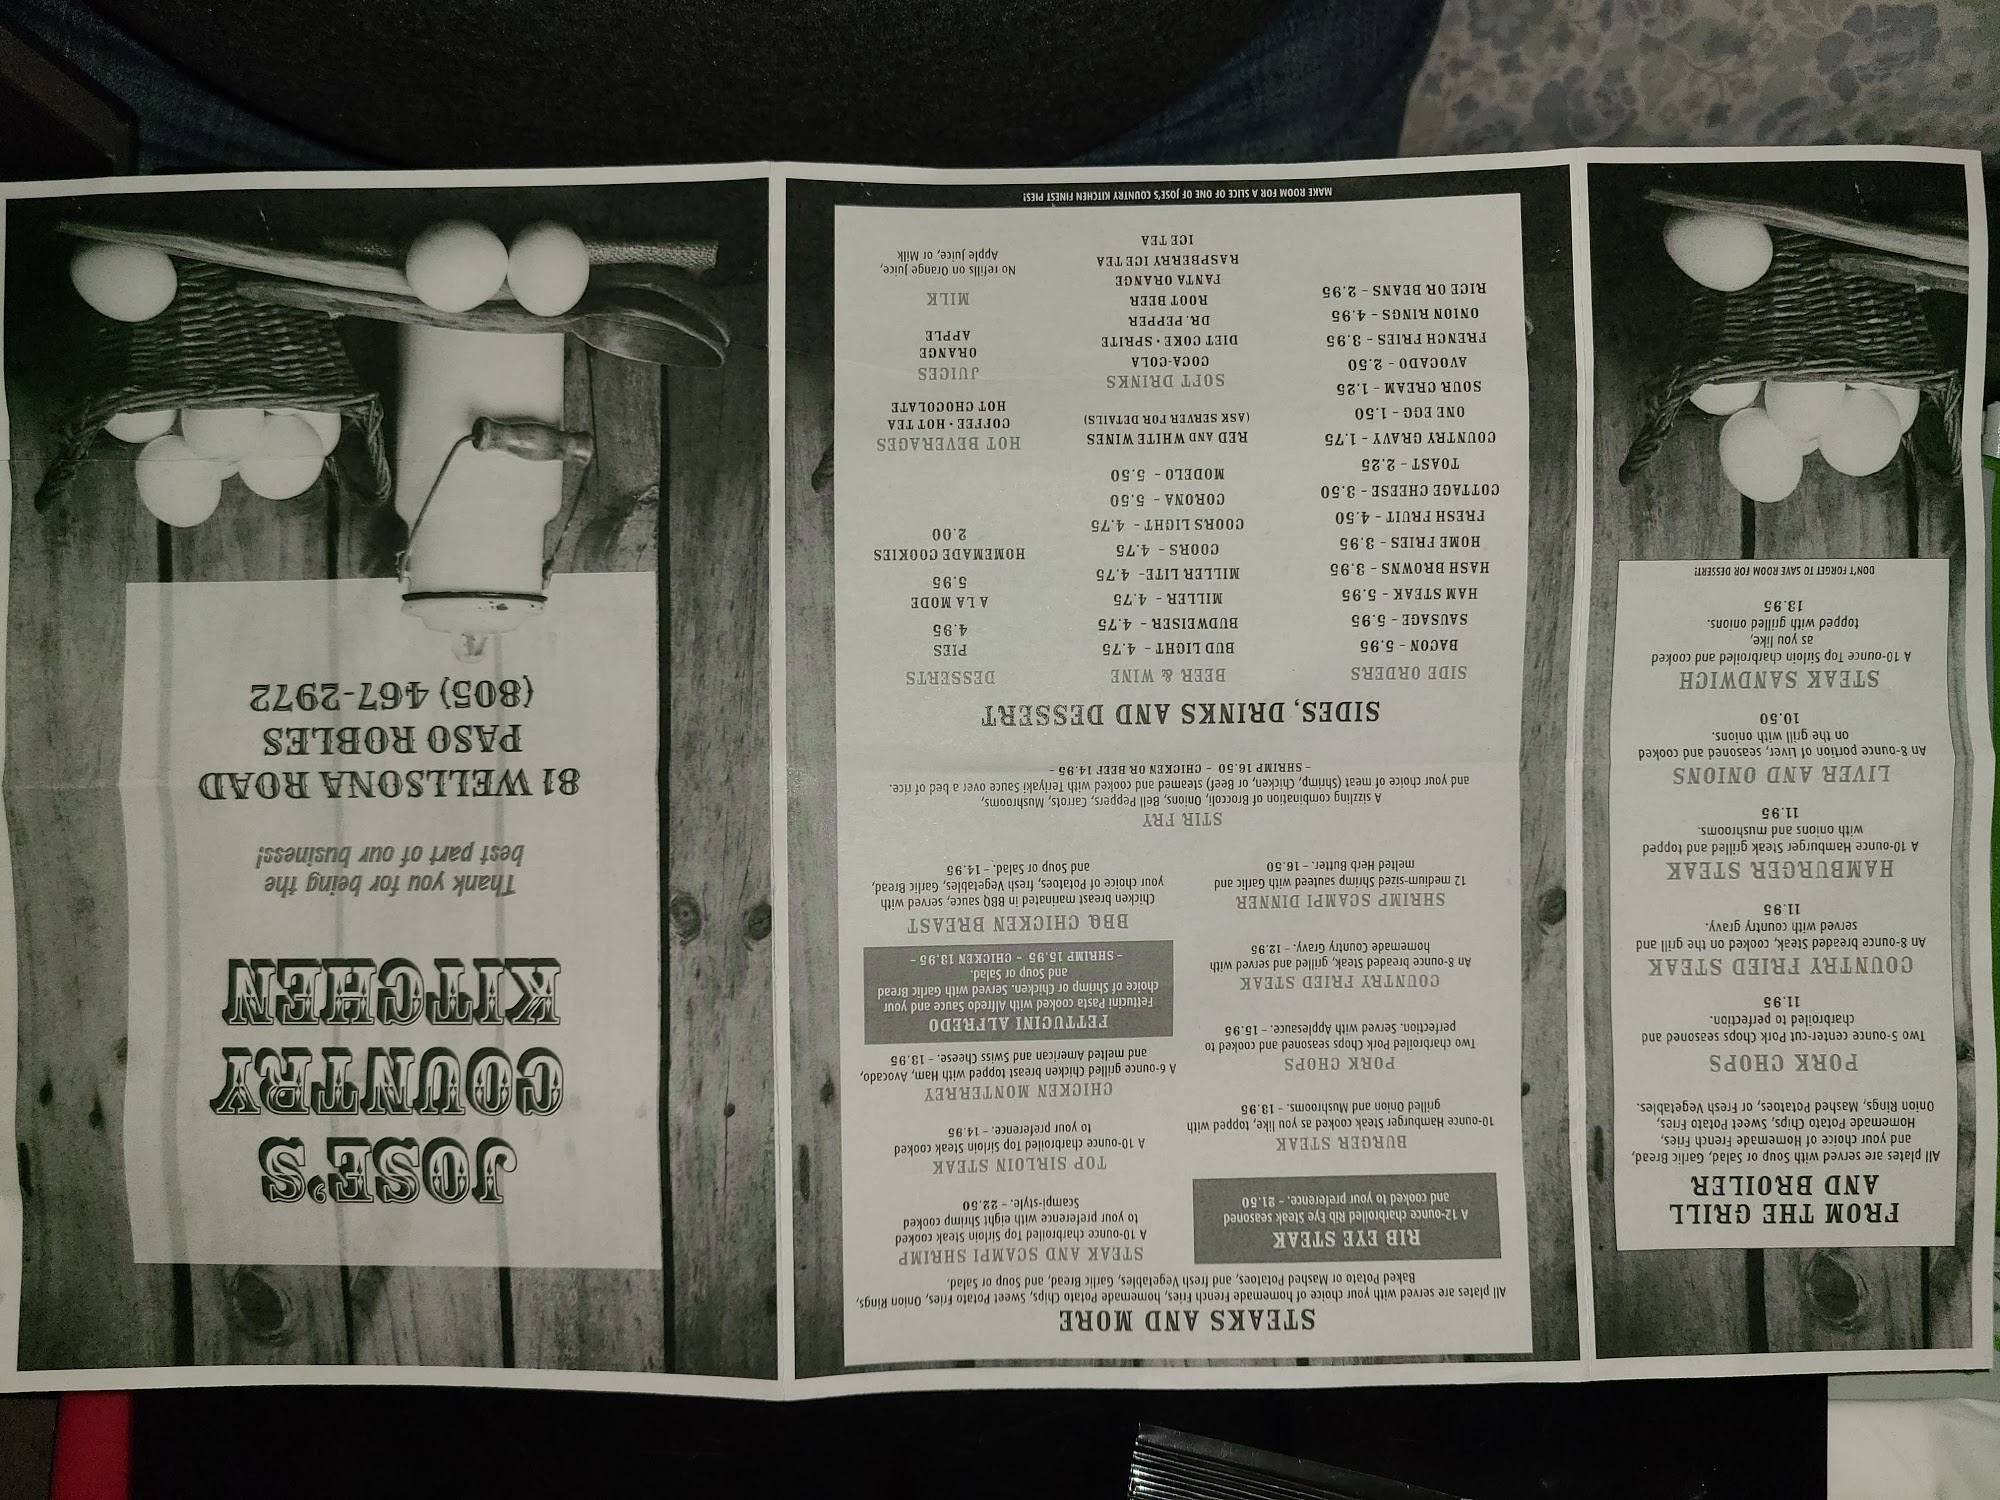 FROM THE GRILL
AND BROILER
All plates are served with Soup or Salad, Garlic Bread,
and your choice of Homemade French Fries,
Homemade Potato Chips, Sweet Potato Fries,
Onion Rings, Mashed Potatoes, or Fresh Vegetables.
PORK CHOPS
Two 5-ounce center-cut Pork Chops seasoned and
charbroiled to perfection.
11.95
COUNTRY FRIED STEAK
An 8-ounce breaded Steak, cooked on the grill and
served with country gravy.
11.95
HAMBURGER STEAK
A 10-ounce Hamburger Steak grilled and topped
with onions and mushrooms.
11.95
LIVER AND ONIONS
An 8-ounce portion of Liver, seasoned and cooked
on the grill with onions.
10.50
STEAK SANDWICH
A 10-ounce Top Sirloin charbroiled and cooked
as you like,
topped with grilled onions.
13.95
DON'T FORGET TO SAVE ROOM FOR DESSERT!
STEAKS AND MORE
All plates are served with your choice of homemade French Fries, homemade Potato Chips, Sweet Potato Fries, Onion Rings,
Baked Potato or Mashed Potatoes, and fresh Vegetables, Garlic Bread, and Soup or Salad.
RIB EYE STEAK
A 12-ounce charbroiled Rib Eye Steak seasoned
and cooked to your preference. - 21.50
BURGER STEAK
10-ounce Hamburger Steak cooked as you like, topped with
grilled Onion and Mushrooms. - 13.95
PORK CHOPS
Two charbroiled Pork Chops seasoned and cooked to
perfection. Served with Applesauce. - 15.95
COUNTRY FRIED STEAK
An 8-ounce breaded Steak, grilled and served with
homemade Country Gravy. - 12.95
SHRIMP SCAMPI DINNER
12 medium-sized Shrimp sauteed with Garlic and
melted Herb Butter. - 16.50
STEAK AND SCAMPI SHRIMP
A 10-ounce charbroiled Top Sirloin Steak cooked
to your preference with eight Shrimp cooked
Scampi-style. - 22.50
TOP SIRLOIN STEAK
A 10-ounce charbroiled Top Sirloin Steak cooked
to your preference. - 14.95
CHICKEN MONTERREY
A 6-ounce grilled chicken breast topped with Ham, Avocado,
and melted American and Swiss Cheese. - 13.95
FETTUCINI ALFREDO
Fettucini Pasta cooked with Alfredo Sauce and your
choice of Shrimp or Chicken. Served with Garlic Bread
and Soup or Salad.
- SHRIMP 15.95 - CHICKEN 13.95 -
BBQ CHICKEN BREAST
Chicken breast marinated in BBQ sauce, served with
your choice of Potatoes, fresh Vegetables, Garlic Bread,
and Soup or Salad. - 14.95
STIR FRY
A sizzling combination of Broccoli, Onions, Bell Peppers, Carrots, Mushrooms,
and your choice of meat (Shrimp, Chicken, or Beef) steamed and cooked with Teriyaki Sauce over a bed of rice.
- SHRIMP 16.50 - CHICKEN OR BEEF 14.95 -
SIDES, DRINKS AND DESSERT
SIDE ORDERS
BACON - 5.95
SAUSAGE - 5.95
HAM STEAK - 5.95
HASH BROWNS - 3.95
HOME FRIES - 3.95
FRESH FRUIT - 4.50
COTTAGE CHEESE - 3.50
TOAST - 2.25
COUNTRY GRAVY - 1.75
ONE EGG - 1.50
SOUR CREAM - 1.25
AVOCADO - 2.50
FRENCH FRIES - 3.95
ONION RINGS - 4.95
RICE OR BEANS - 2.95
BEER & WINE
BUD LIGHT - 4.75
BUDWEISER - 4.75
MILLER - 4.75
MILLER LITE- 4.75
COORS - 4.75
COORS LIGHT - 4.75
CORONA - 5.50
MODELO - 5.50
RED AND WHITE WINES
(ASK SERVER FOR DETAILS)
SOFT DRINKS
COCA-COLA
DIET COKE • SPRITE
DR. PEPPER
ROOT BEER
FANTA ORANGE
RASPBERRY ICE TEA
ICE TEA
DESSERTS
PIES
4.95
A LA MODE
5.95
HOMEMADE COOKIES
2.00
HOT BEVERAGES
COFFEE • HOT TEA
HOT CHOCOLATE
JUICES
ORANGE
APPLE
MILK
No refills on Orange Juice,
Apple Juice, or Milk
MAKE ROOM FOR A SLICE OF ONE OF JOSE'S COUNTRY KITCHEN FINEST PIES!
JOSE'S
COUNTRY
KITCHEN
Thank you for being the
best part of our business!
81 WELLSONA ROAD
PASO ROBLES
(805) 467-2972